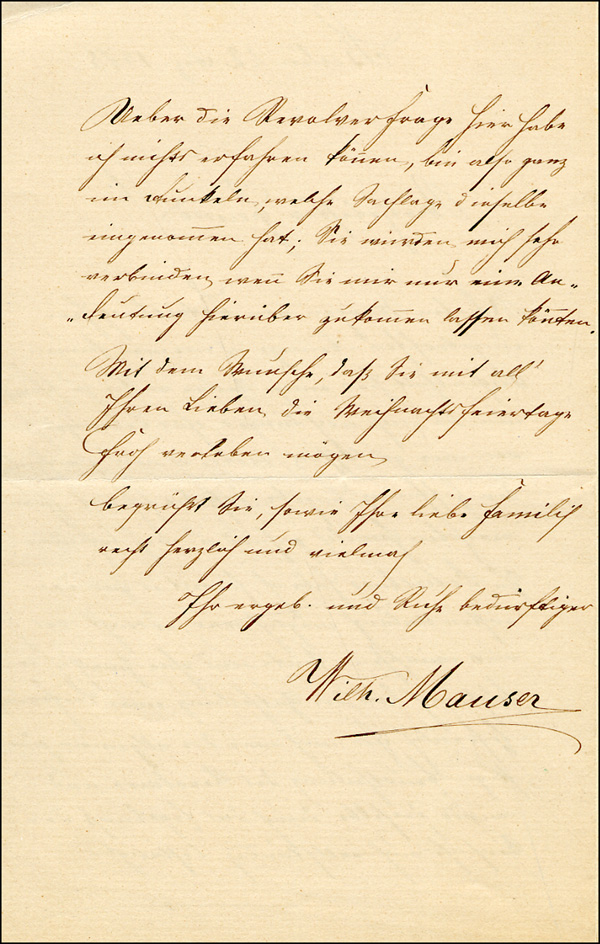 Ueber die Revolverfrage hier habe
ich nichts erfahren könen, bin also ganz
im dunkeln, welche Sachlage dieselbe
eingenomen hat; Sie würden mich sehr
verbinden, wen Sie mir nur eine An-
deutung hierüber zukommen lassen könten.
Mit dem Wunsche, daß Sie mit all'
Ihren Lieben die Weihnachtsfeiertage
froh verleben mögen
begrüßt Sie, sowie Ihre liebe Familie
recht herzlich und vielmals
Ihr ergeb. und Ruhe bedürftiger
Wilh. Mauser